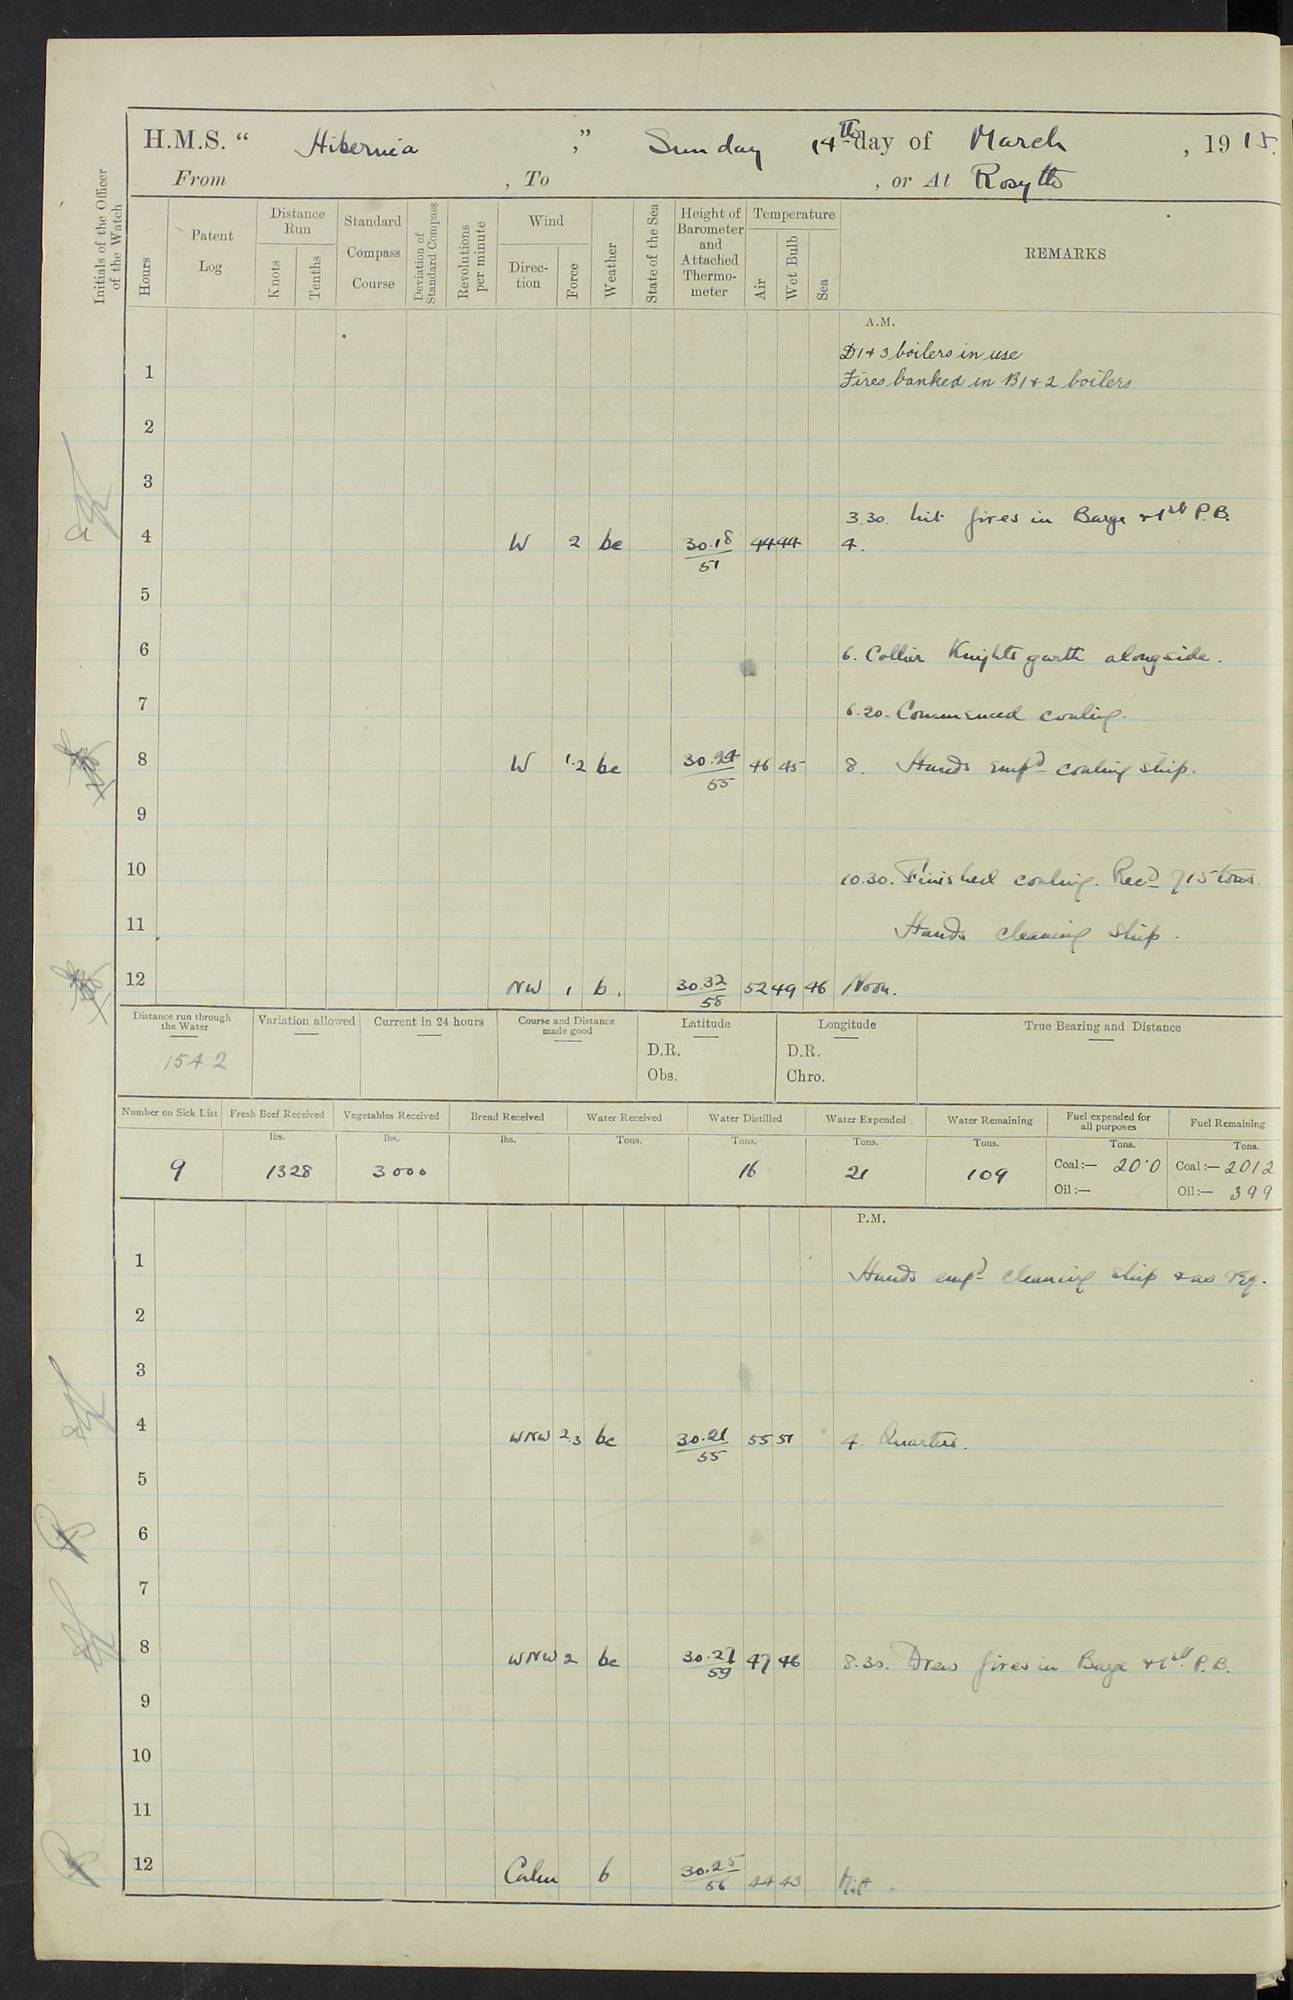 H.M.S. “ Hibernia ,” Sunday 14th day of March , 1915.
From , To , or At Rosyth
Initials of the Officer of the Watch
Hours
Patent Log
Distance Run
Knots
Tenths
Standard Compass Course
Deviation of Standard Compass
Revolutions per minute
Wind
Direction
Force
Weather
State of the Sea
Height of Barometer and Attached Thermometer
Temperature
Air
Wet Bulb
Sea
REMARKS
A.M.
D1 & 3 boilers in use
1 Fires banked in B1 & 2 boilers
2
3
3.30. Lit fires in Barge & 1st P.B.
4 W 2 bc 30.18/51 44 44 4.
5
6 6. Collier Knightsgarth alongside.
7 6.20. Commenced coaling.
8 W 1.2 bc 30.24/55 46 45 8. Hands empd coaling ship.
9
10 10.30. Finished coaling. Recd 715 tons.
11 Hands cleaning ship.
12 NW 1 b. 30.32/58 52 49 46 Noon.
Distance run through the Water Variation allowed Current in 24 hours Course and Distance made good Latitude Longitude True Bearing and Distance
154.2 D.R. D.R.
Obs. Chro.
Number on Sick List Fresh Beef Received Vegetables Received Bread Received Water Received Water Distilled Water Expended Water Remaining Fuel expended for all purposes Fuel Remaining
lbs. lbs. lbs. Tons. Tons. Tons. Tons. Tons. Tons.
9 1328 3000 16 21 109 Coal:— 20.0 Coal:— 2012
Oil:— Oil:— 399
P.M.
1 Hands empd cleaning ship & as req.
2
3
4 WNW 2.3 bc 30.21/55 55 51 4. Quarters.
5
6
7
8 WNW 2 bc 30.27/59 47 46 8.30. Drew fires in Barge & 1st P.B.
9
10
11
12 Calm b 30.25/56 44 43 Mid.